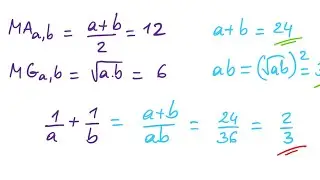 MA a,b = (a+b)/2 = 12
a+b = 24
MG a,b = √a.b = 6
ab = (√ab)² = 3
1/a + 1/b = (a+b)/ab = 24/36 = 2/3